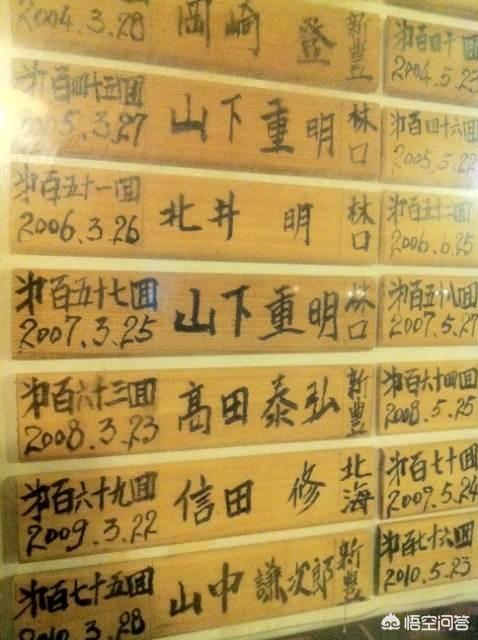 2004.3.28
岡崎 登
新豊
㐧百四十回
2004.5.23
㐧百四十五回
2005.3.27
山下重明
林口
㐧百四十六回
2005.5.22
㐧百五十一回
2006.3.26
北井 明
林口
㐧百五十二回
2006.6.25
㐧百五十七回
2007.3.25
山下重明
林口
㐧百五十八回
2007.5.27
㐧百六十三回
2008.3.23
高田泰弘
新豊
㐧百六十四回
2008.5.25
㐧百六十九回
2009.3.22
信田 修
北海
㐧百七十回
2009.5.24
㐧百七十五回
2010.3.28
山中謙次郎
新豊
㐧百七十六回
2010.5.23
悟空问答